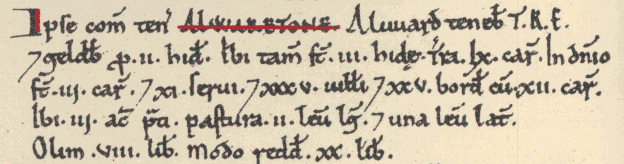 Ipse com̄ ten̄ ALWARESTONE. Aluuard teneb̄ T.R.E.
⁊ geldb̄ ꝓ .ii. hid̄. Ibi tam̄ st̄ .iii. hidę. Tr̄a .ix. car̄. In dn̄io
st̄ .iij. car̄. ⁊ xi. serui. ⁊ xxx v. uilli. ⁊ xx v. bord̄ cū .xii. car̄.
Ibi .iij. ac̄ p̄ti. pastura .ii. leū lḡ. ⁊ una leū lat̄.
Olim .viii. lib̄. Modo redd̄ .xx. lib̄.